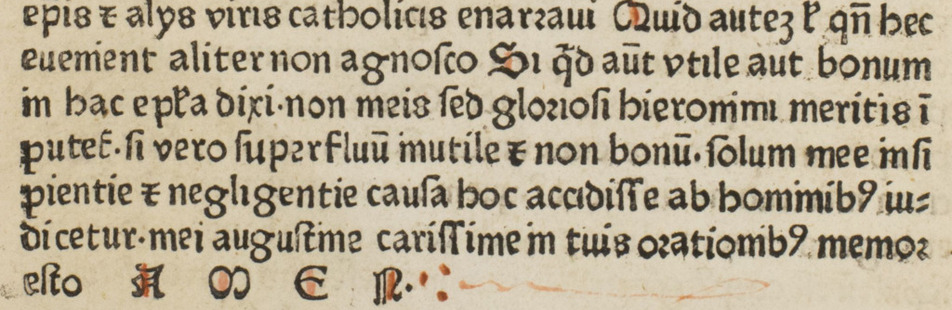 epis ⁊ alijs viris catholicis enarraui Quid auteʒ ł qñ hec
euenient aliter non agnoſco Si qd̄ aūt vtile aut bonum
in hac epľa dixi·non meis ſed glorioſi hieronimi meritis ī
putet᷑·ſi vero ſuperfluū inutile ⁊ non bonū·ſolum mee inſi
pientie ⁊ negligentie cauſa hoc accidiſſe ab hominibꝰ iu⸗
dicetur·mei auguſtine cariſſime in tuis orationibꝰ memor
eſto A M E N·